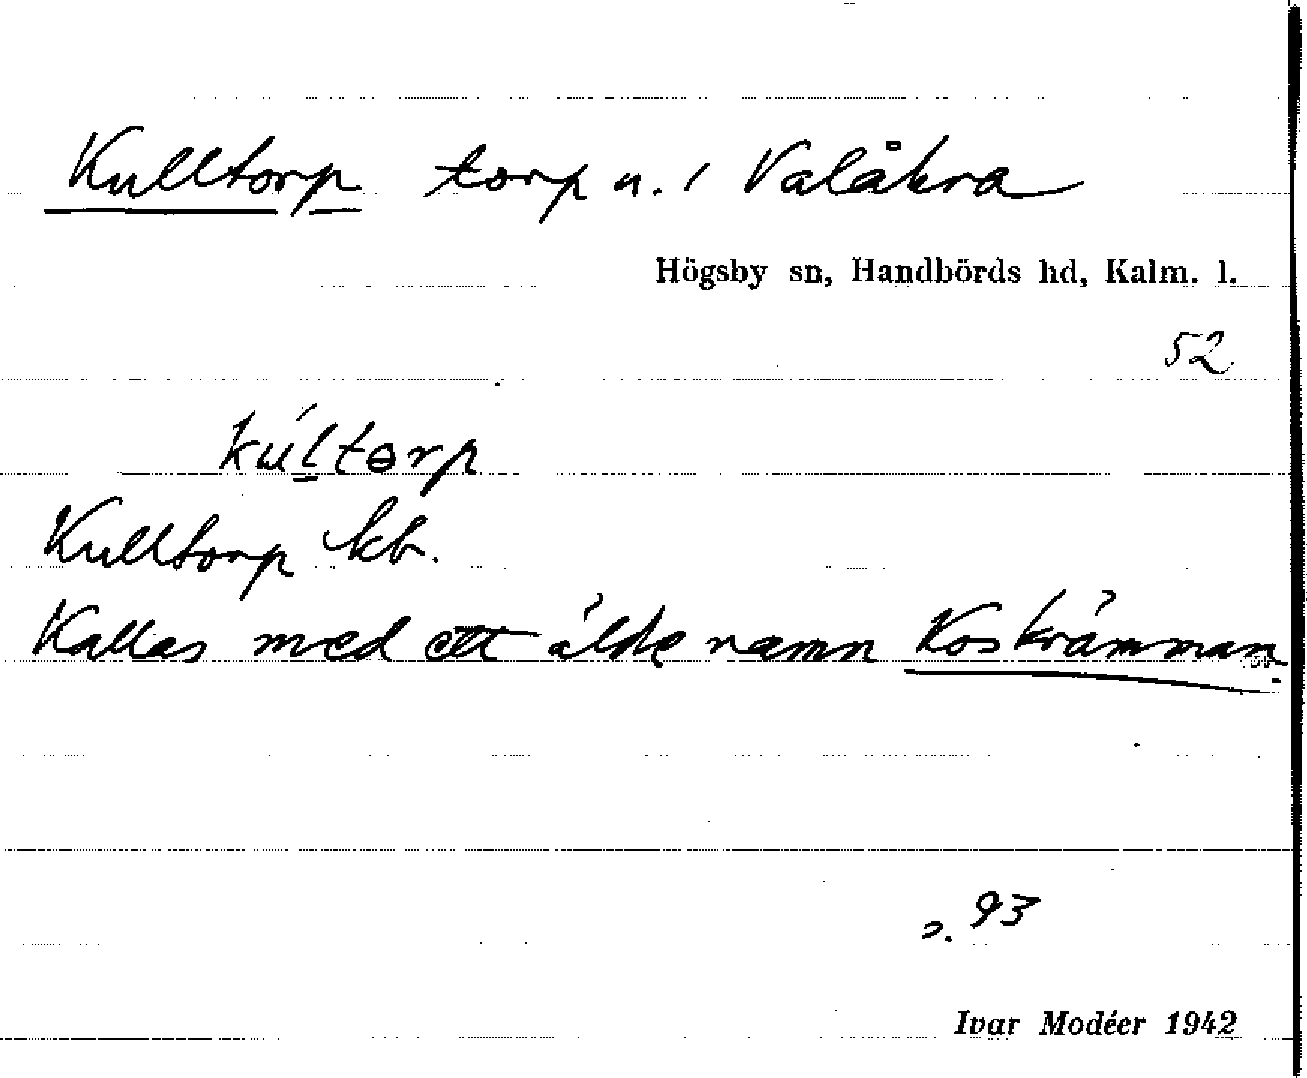 Kulltorp torp u. / Valåkra
Högsby sn, Handbörds hd, Kalm. l.
52
kúltɵrp
Kulltorp kb.
Kallas med ett äldre namn Koskrämman
s. 93
Ivar Modéer 1942